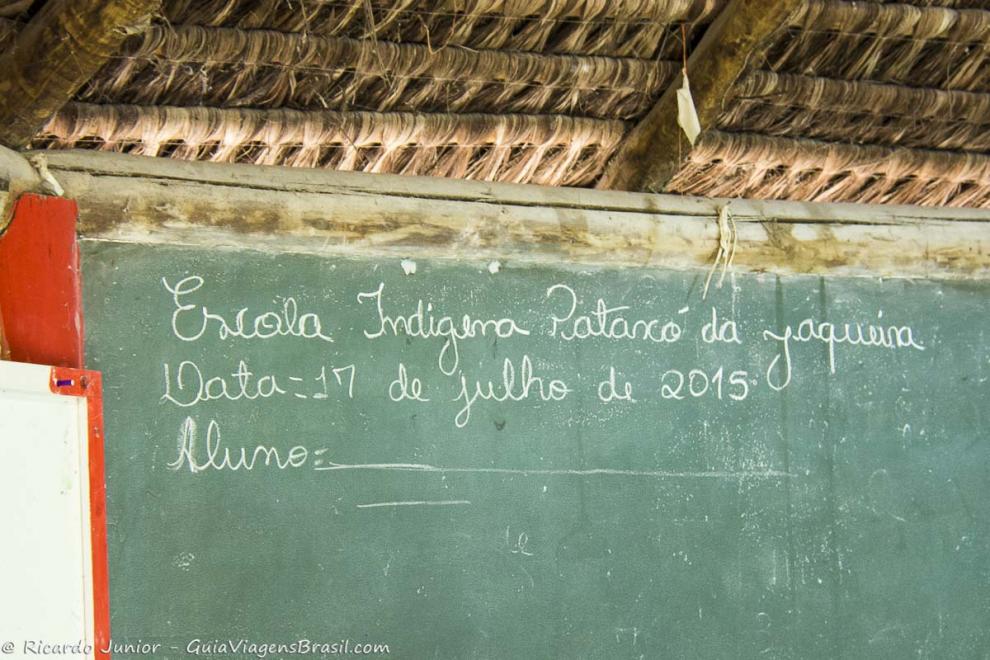 Escola Indigena Pataxó da jaqueira
Data=17 de julho de 2015.
Aluno=
@ Ricardo Junior - GuiaViagensBrasil.com